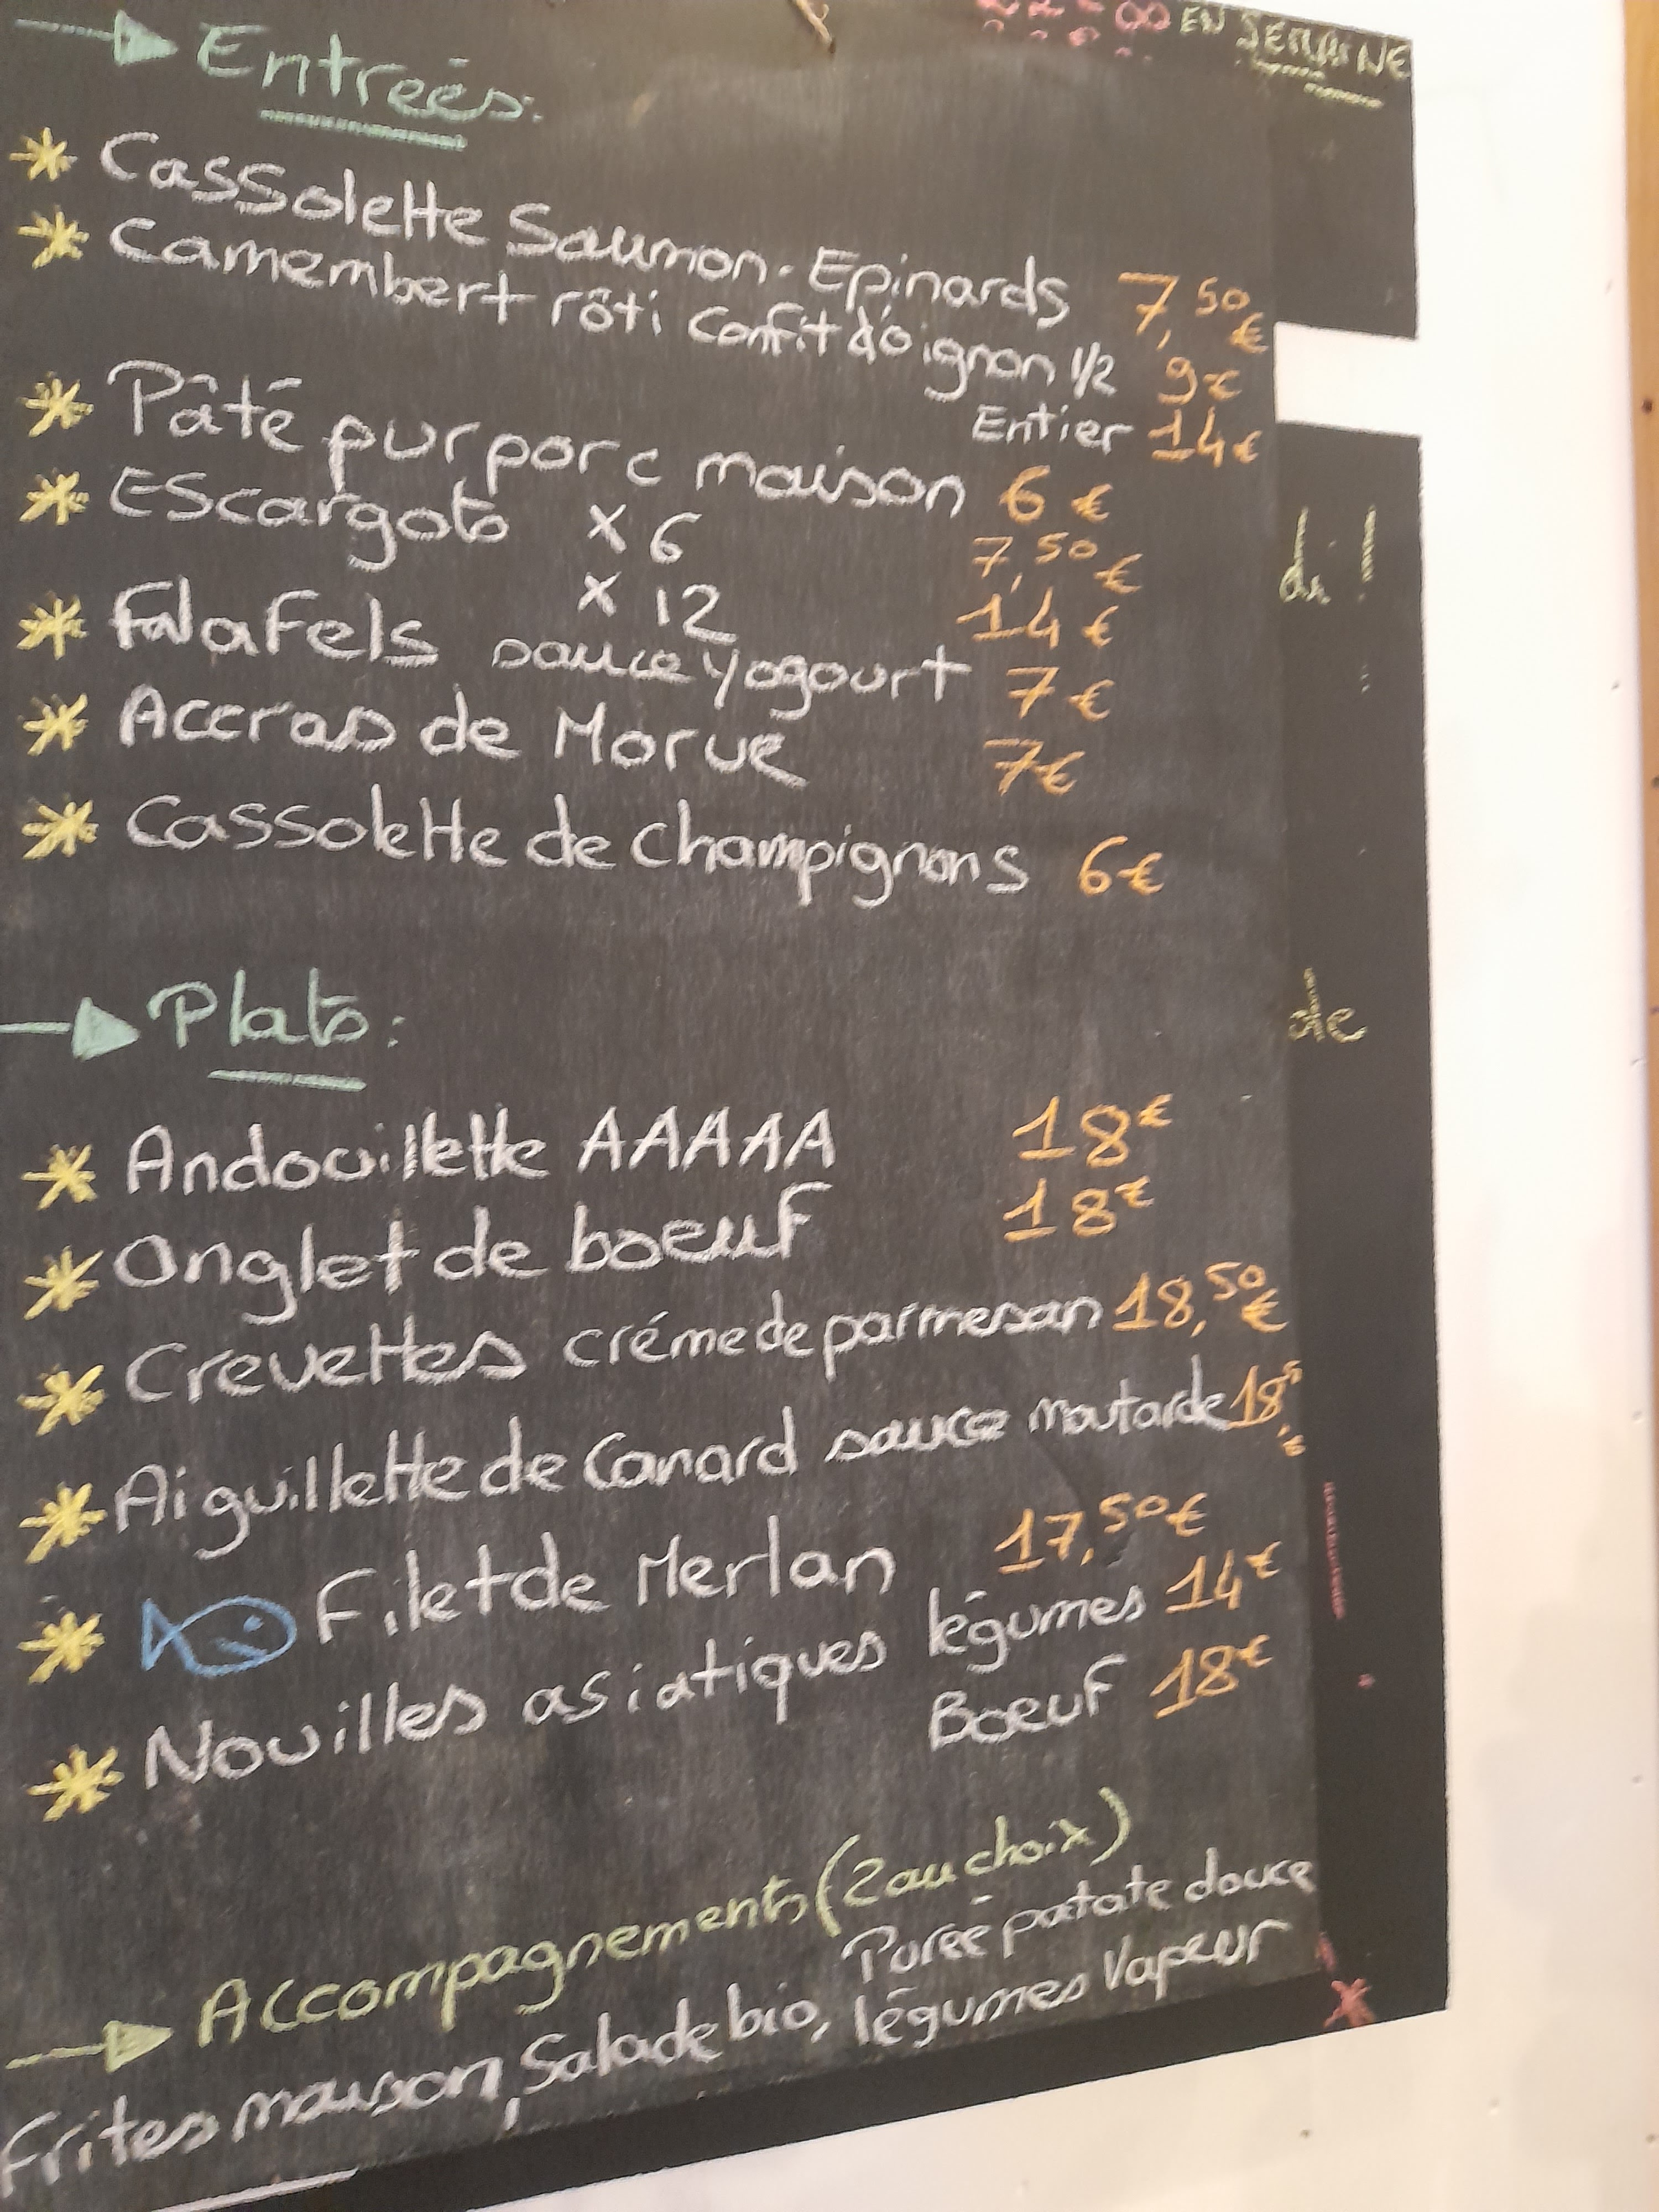 EN SEMAINE
Entrées:
Cassolette Saumon-Epinards 7,50 €
Camembert rôti Confit d'oignon 1/2 9€
Entier 14€
Pâté pur porc maison 6 €
Escargots x 6 7,50 €
x 12 14 €
Falafels sauce yogourt 7 €
Accras de Morue 7€
Cassolette de champignons 6€
Plats:
Andouillette AAAAA 18€
Onglet de boeuf 18€
Crevettes créme de parmesan 18,50€
Aiguillette de Canard sauce moutarde 18
Filet de Merlan 17,50€
Nouilles asiatiques légumes 14€
Boeuf 18€
Accompagnements (2 au choix)
Purée patate douce
Frites maison, Salade bio, légumes Vapeur
de